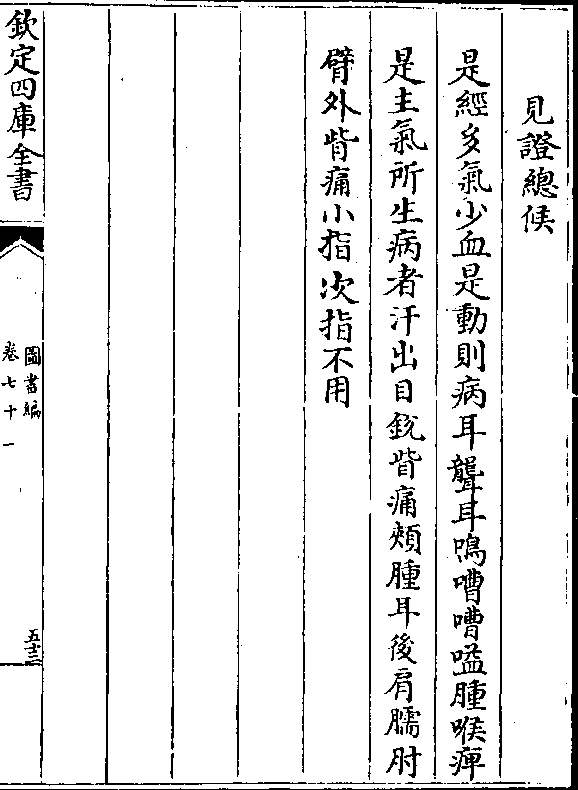 見證總候
是經多氣少血是動則病耳聾耳鳴嘈嘈嗌腫喉痺
是主氣所生病者汗出目銳眥痛頰腫耳後肩臑肘
臂外眥痛小指次指不用
欽定四庫全書
圖書編
卷七十一
五十三